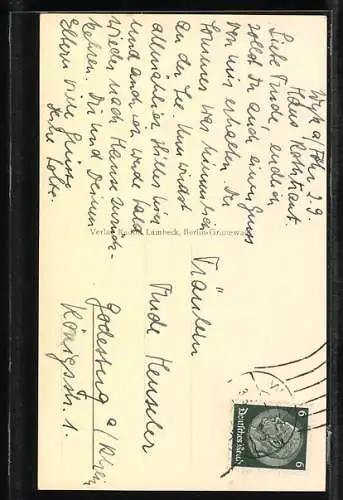 Wyk a/Föhr 2.9.
Haus Rotstraut.
Liebe Trude, endlich
sollst Du auch einen Gruss
von mir erhalten. Der
Sommer war himmlisch
an der See. Nun wirst
allmählich
und auch wir werden bald
wieder nach Hause zurück-
kehren. Dir und Deinen
Eltern viele Grüsse
Deine Lotte.
Verlag Rudolf Lambeck, Berlin-Grunewald
Fräulein
Trude Heuseler
Godesberg a/Rhein
Königstr. 1.
6 6
Deutsches Reich